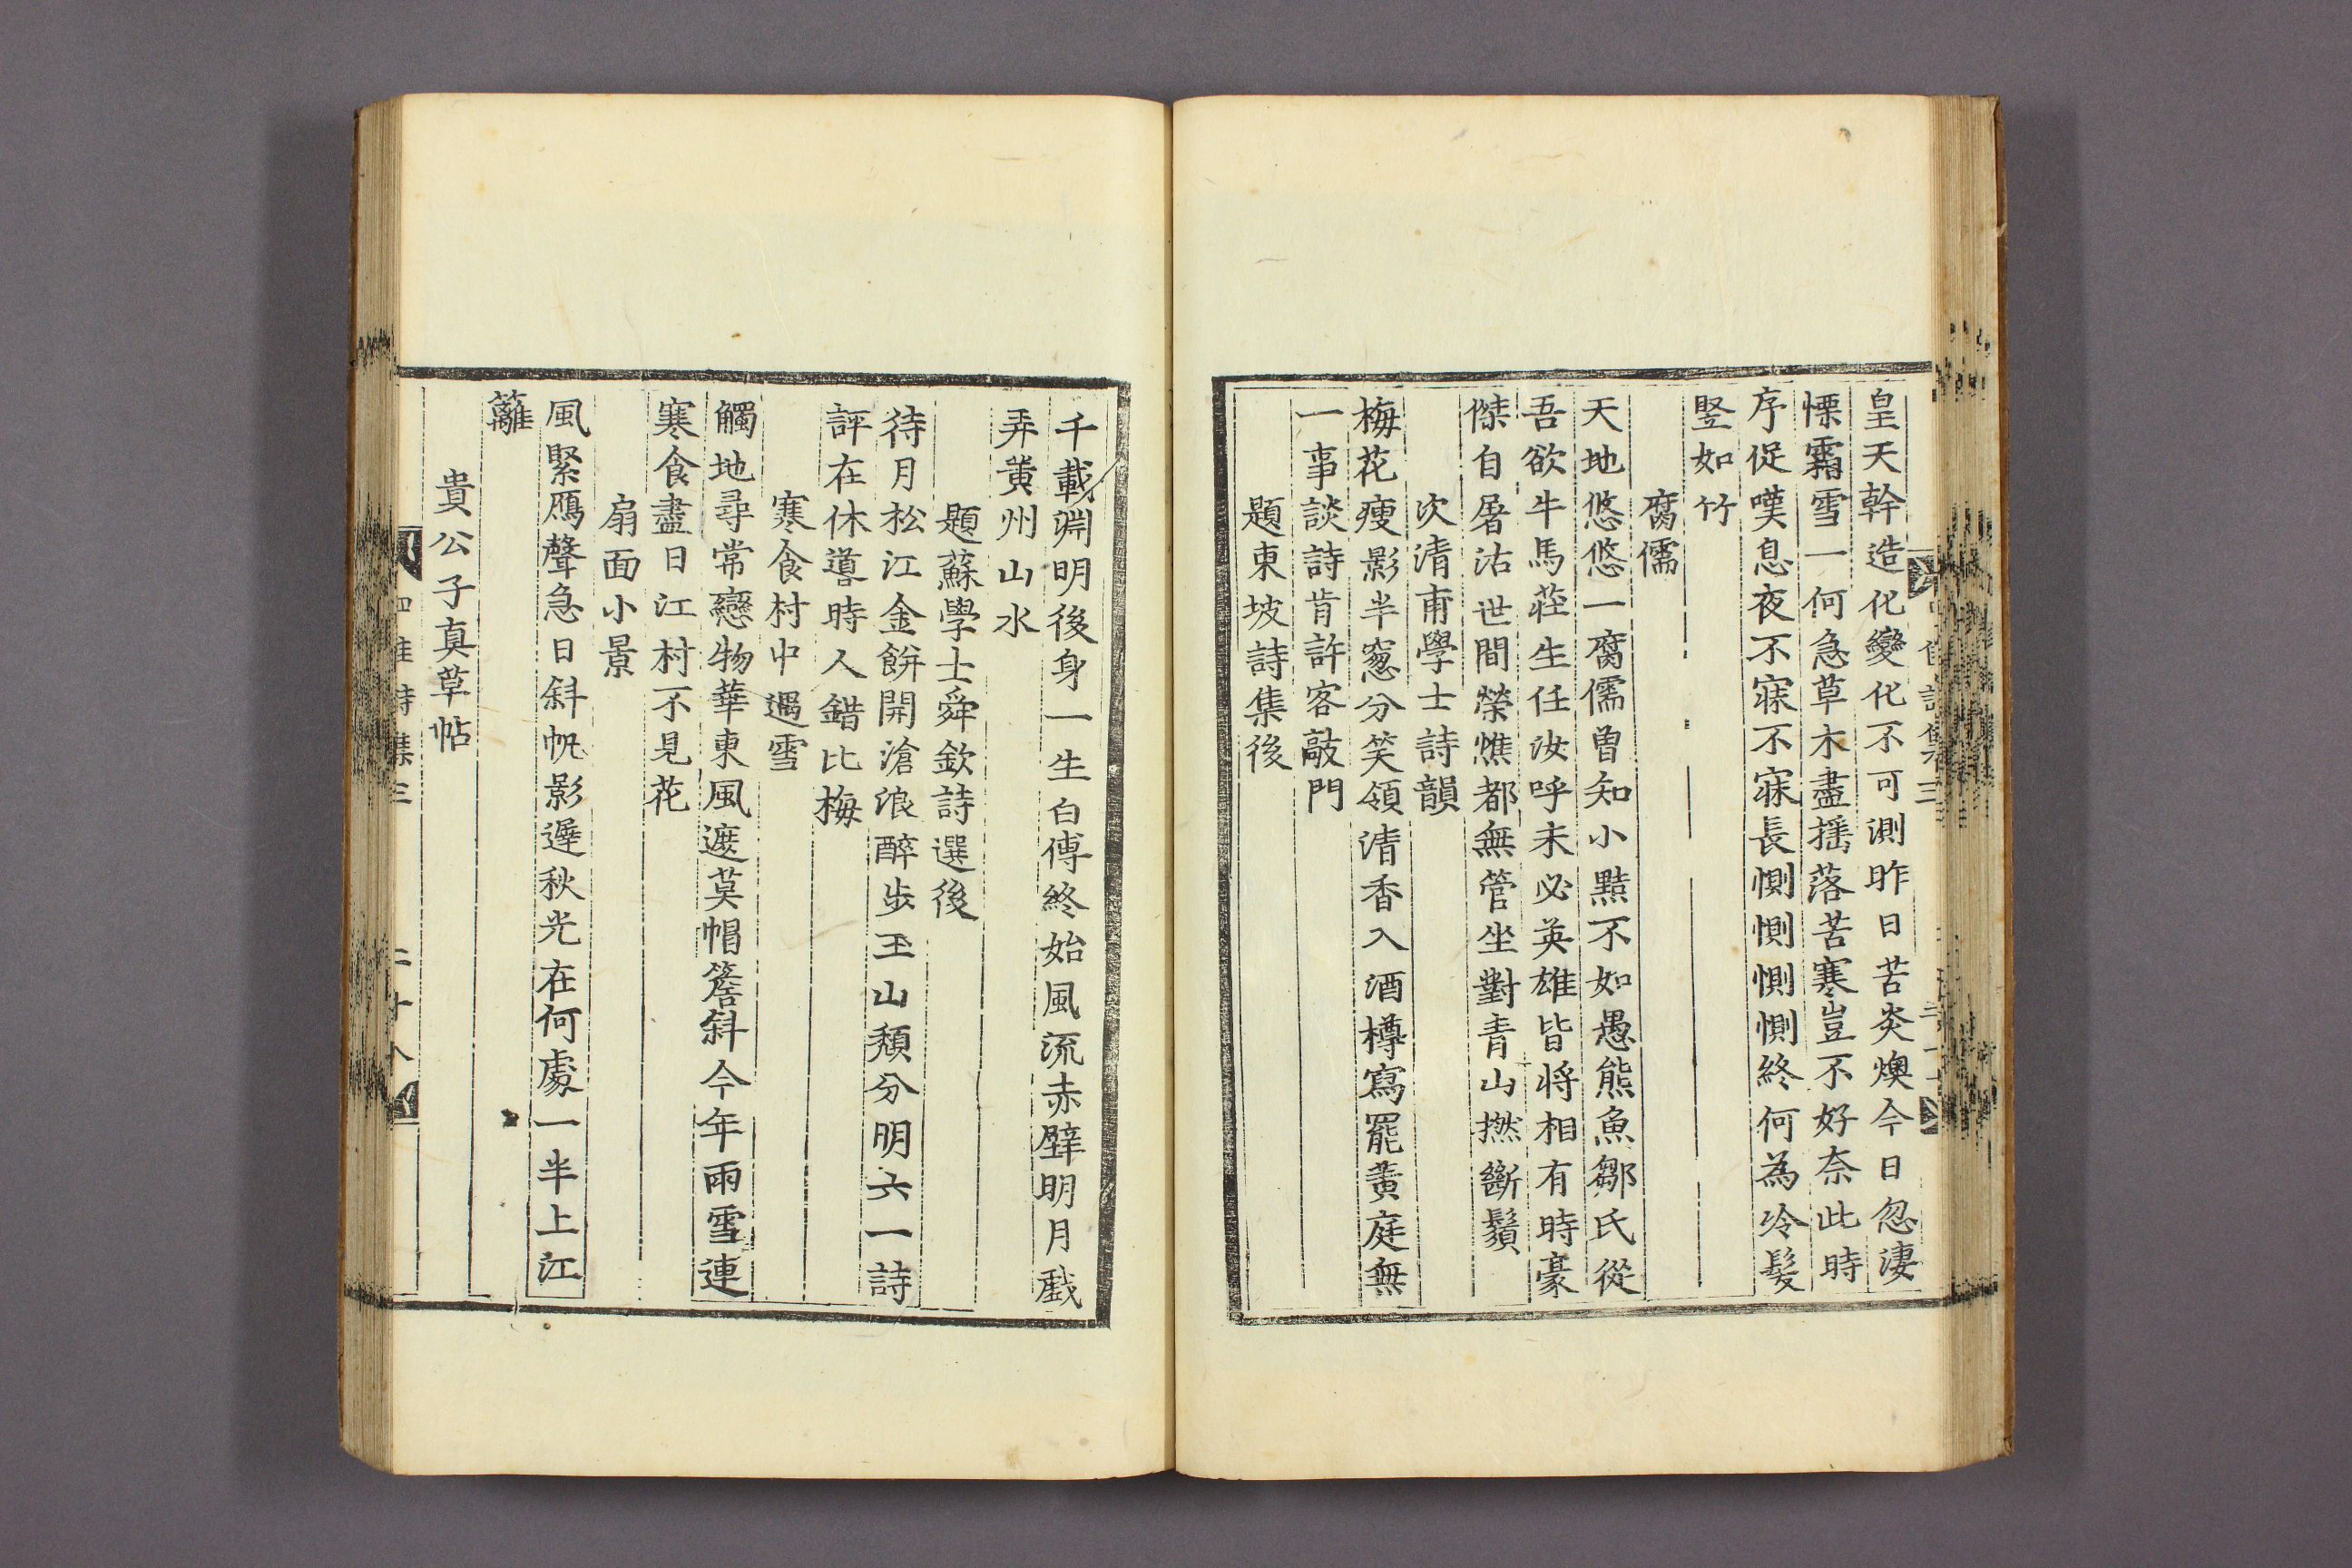 皇天幹造化變化不可測昨日苦炎燠今日忽淒
慄霜雪一何急草木盡搖落苦寒豈不好奈此時
序促嘆息夜不寐不寐長惻惻惻惻終何為冷髮
竪如竹
腐儒
天地悠悠一腐儒曾知小黠不如愚熊魚鄒氏從
吾欲牛馬莊生任汝呼未必英雄皆將相有時豪
傑自屠沽世間榮憔都無管坐對青山撚斷鬚
次清甫學士詩韻
梅花瘦影半窓分笑領清香入酒樽寫罷黃庭無
一事談詩肯許客敲門
題東坡詩集後
千載淵明後身一生白傅終始風流赤壁明月戱
弄黃州山水
題蘇學士舜欽詩選後
待月松江金餅開滄浪醉步玉山頹分明六一詩
評在休導時人錯比梅
寒食村中遇雪
觸地尋常戀物華東風遮莫帽簷斜今年雨雪連
寒食盡日江村不見花
扇面小景
風緊鴈聲急日斜帆影遲秋光在何處一半上江
籬
貴公子真草帖
四佳詩集三
二十八